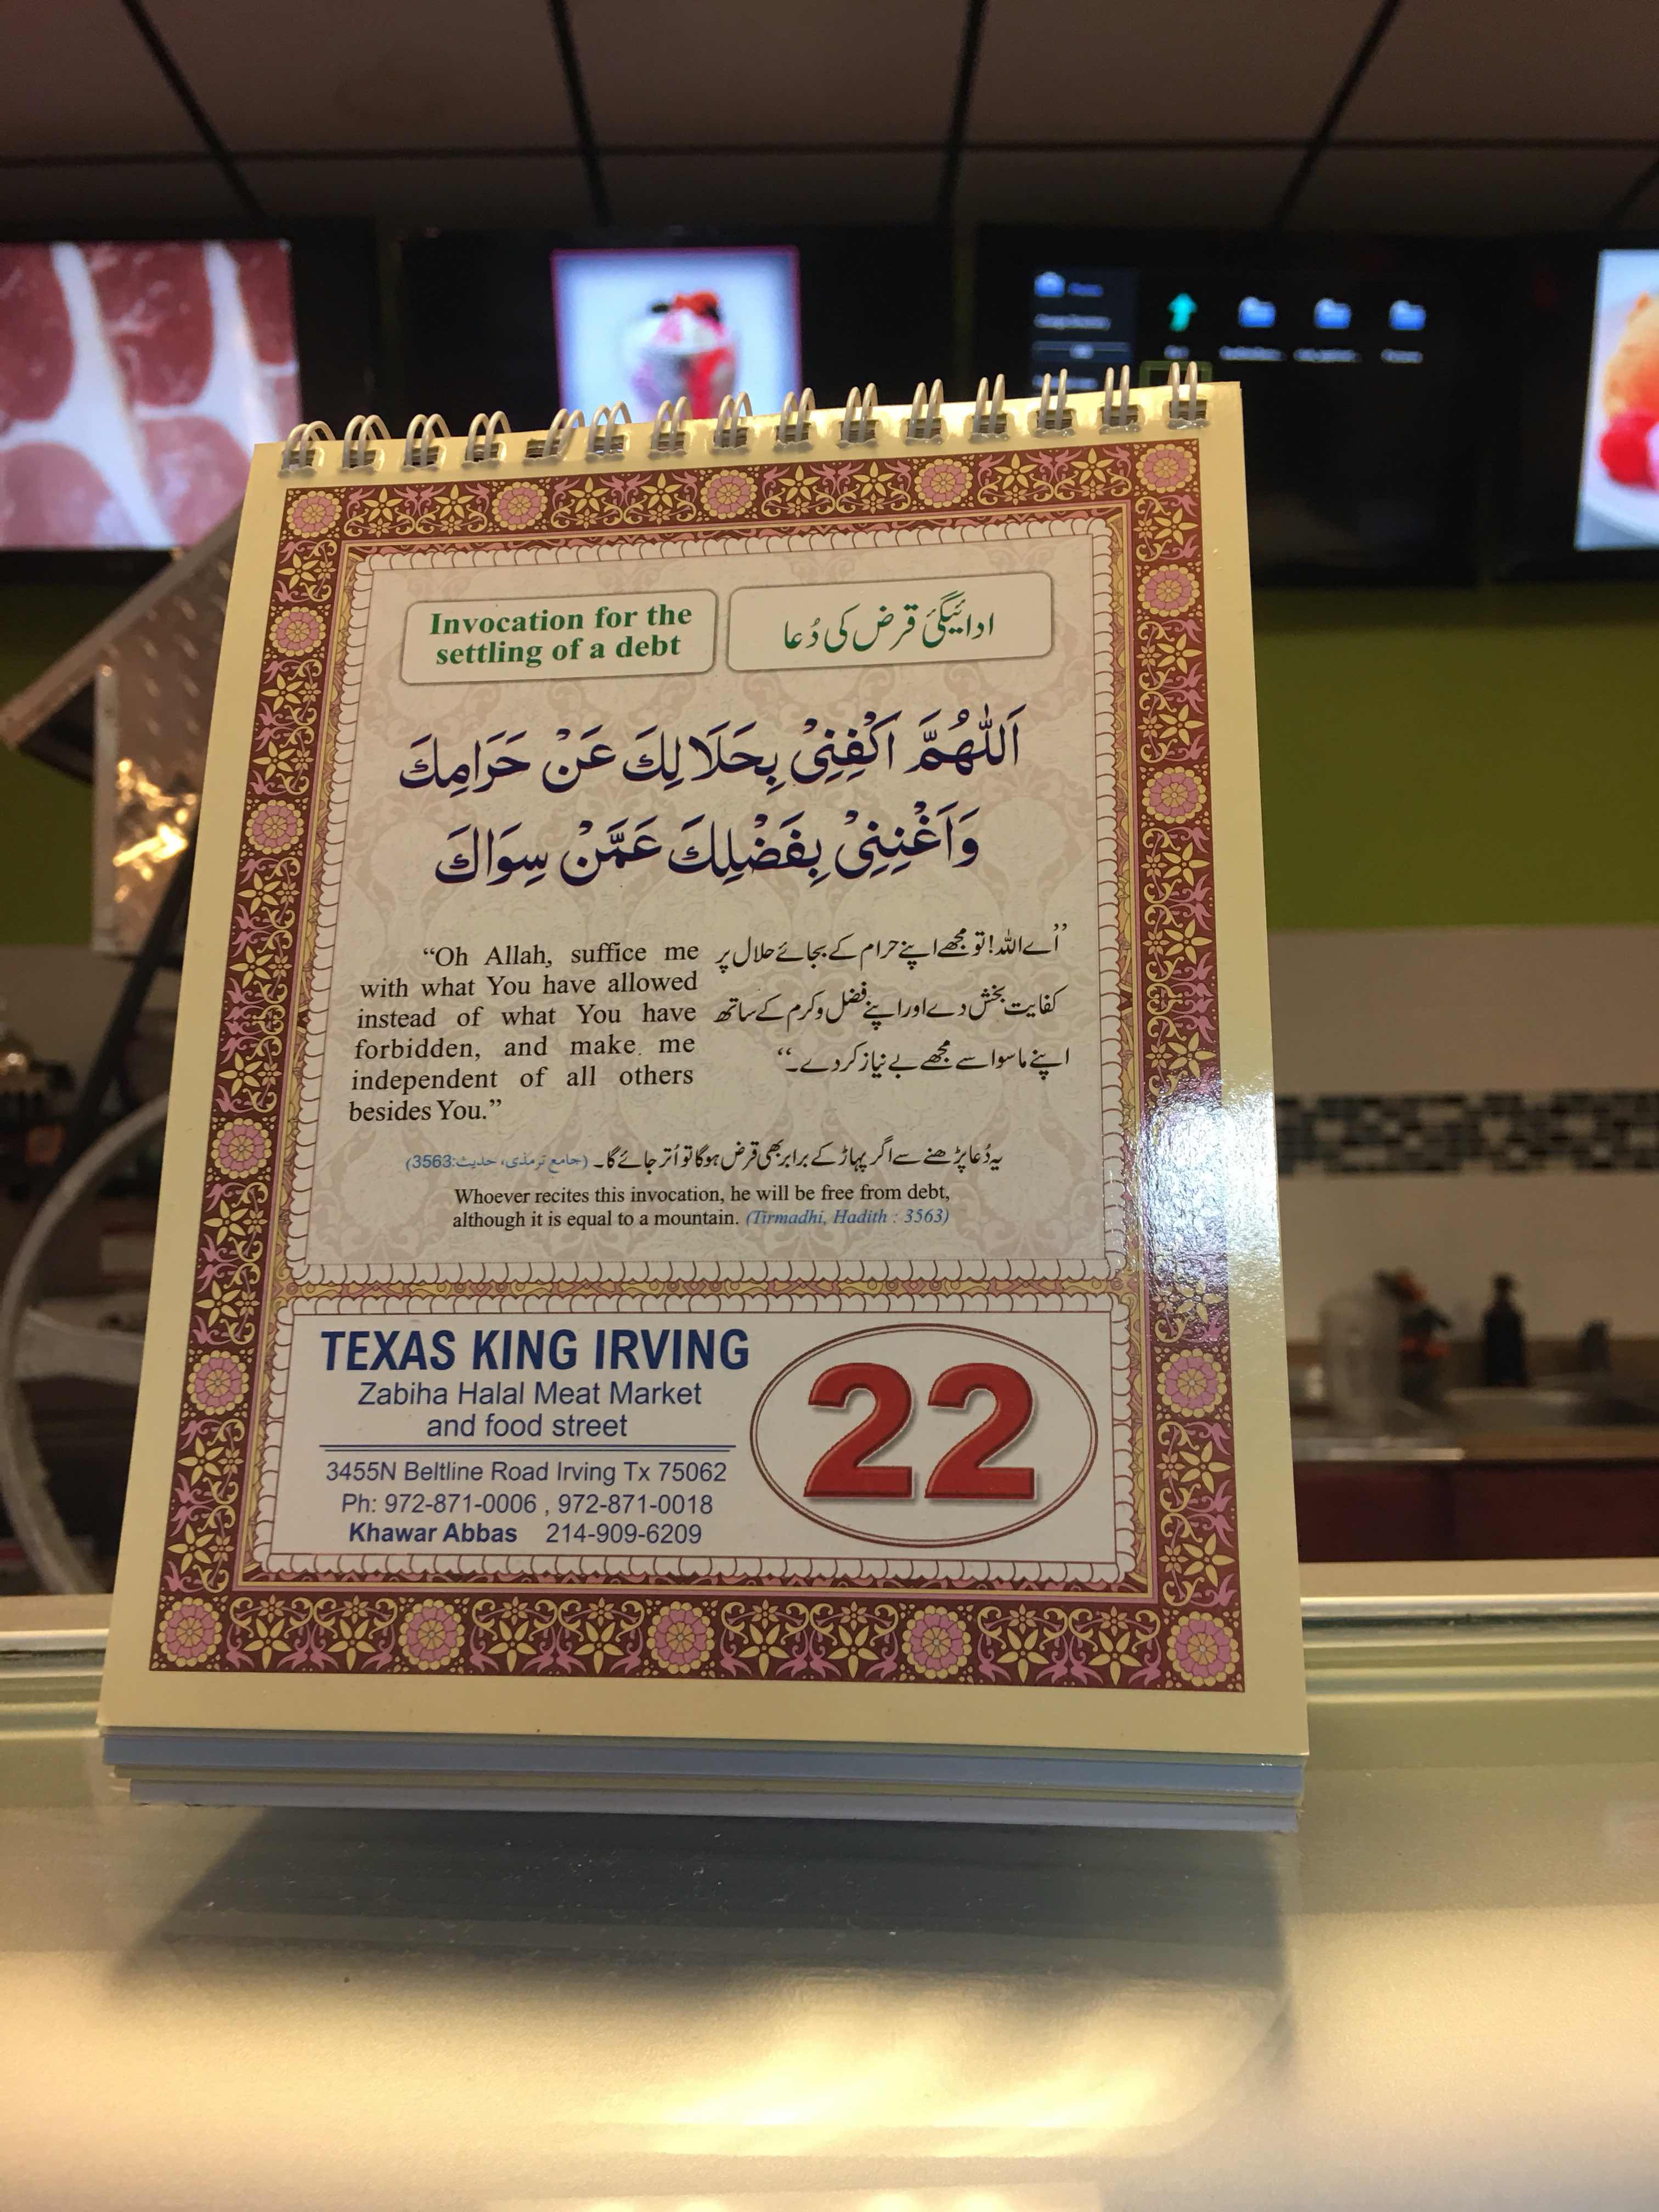 Invocation for the
settling of a debt
ادائیگئ قرض کی دُعا
اَللّٰهُمَّ اكْفِنِيْ بِحَلَالِكَ عَنْ حَرَامِكَ
وَاَغْنِنِيْ بِفَضْلِكَ عَمَّنْ سِوَاكَ
“Oh Allah, suffice me
with what You have allowed
instead of what You have
forbidden, and make me
independent of all others
besides You.”
’’اے اللہ! تو مجھے اپنے حرام کے بجائے حلال پر
کفایت بخش دے اور اپنے فضل و کرم کے ساتھ
اپنے ماسوا سے مجھے بے نیاز کردے۔‘‘
یہ دُعا پڑھنے سے اگر پہاڑ کے برابر بھی قرض ہوگا تو اُتر جائے گا۔ (جامع ترمذی، حدیث:3563)
Whoever recites this invocation, he will be free from debt,
although it is equal to a mountain. (Tirmadhi, Hadith : 3563)
TEXAS KING IRVING
Zabiha Halal Meat Market
and food street
3455N Beltline Road Irving Tx 75062
Ph: 972-871-0006 , 972-871-0018
Khawar Abbas 214-909-6209
22